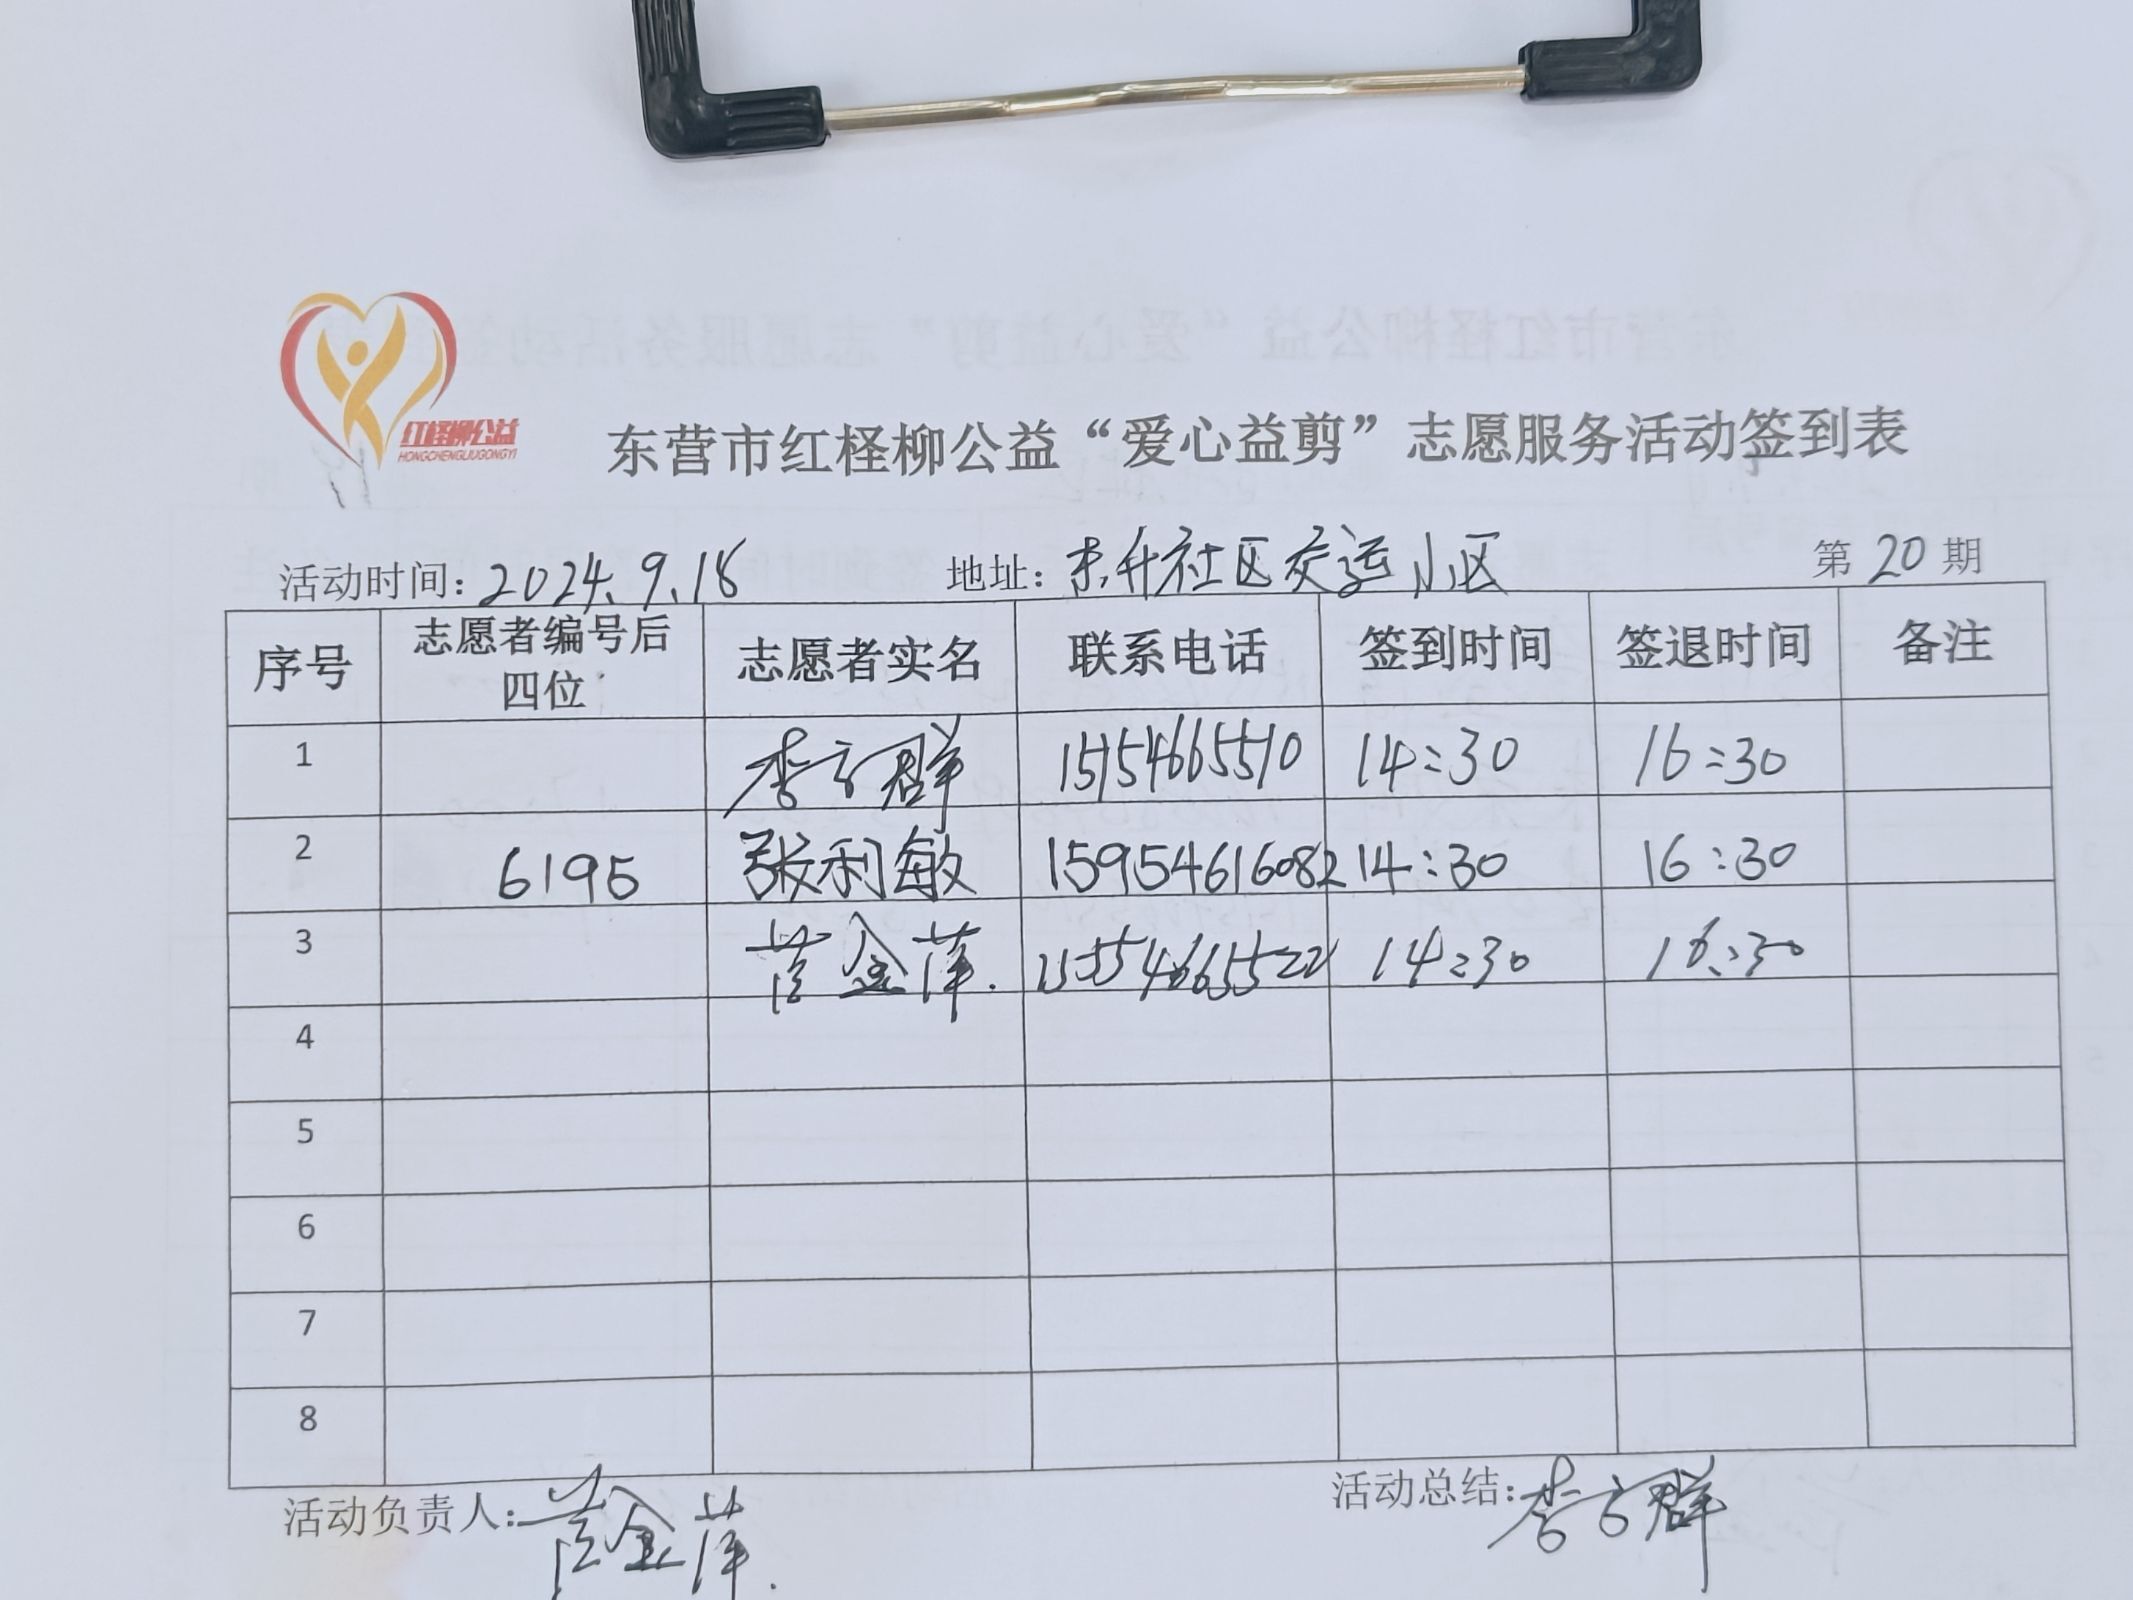 红柽柳公益
HONGCHENGLIUGONGYI
东营市红柽柳公益“爱心益剪”志愿服务活动签到表
活动时间：2024.9.18 地址：东升社区交运小区 第20期
序号 志愿者编号后四位 志愿者实名 联系电话 签到时间 签退时间 备注
1 李方群 15154665510 14:30 16:30
2 6195 张利敏 15954616082 14:30 16:30
3 金萍. 14:30 16:30
4
5
6
7
8
活动负责人： 金萍. 活动总结：李方群